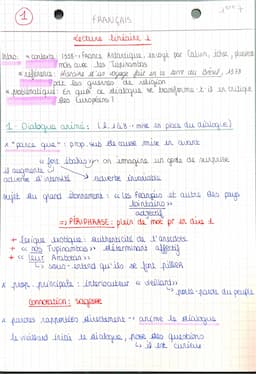 1
FRANÇAIS
1ère 7
Lecture linéaire 1
Intro: * contexte: 1558 → France Antarctique, envoyé par Calvin, échec, plusieurs
mois avec les Tupinambas
* référence: Histoire d'un voyage fait en la terre du Brésil, 1578
par les guerres de religion
* problématique: En quoi ce dialogue se transforme-t-il en critique
des Européens ?
1 - Dialogue animé: (l.1 à 8 → mise en place du dialogue)
* "parce que": prop. sub de cause mise en avant
« fort ébahis » on imagine un geste de surprise
adverbe d'intensité
adverbe
sujet du grand étonnement: « les Français et autres des pays
lointains »
adjectif
=> PÉRIPHRASE: plein de mot pr en dire 1
+ lexique exotique: authenticité de l'anecdote
+ « nos Tupinambas » déterminant affectif
+ « leur Arabotan »
↳ sous-entend qu'ils se font piller
* prop. principale: interlocuteur « vieillard »
↳ porte-parole du peuple
connotation: sagesse
* paroles rapportées directement → anime le dialogue
le vieillard initie le dialogue, pose des questions
↳ il est curieux